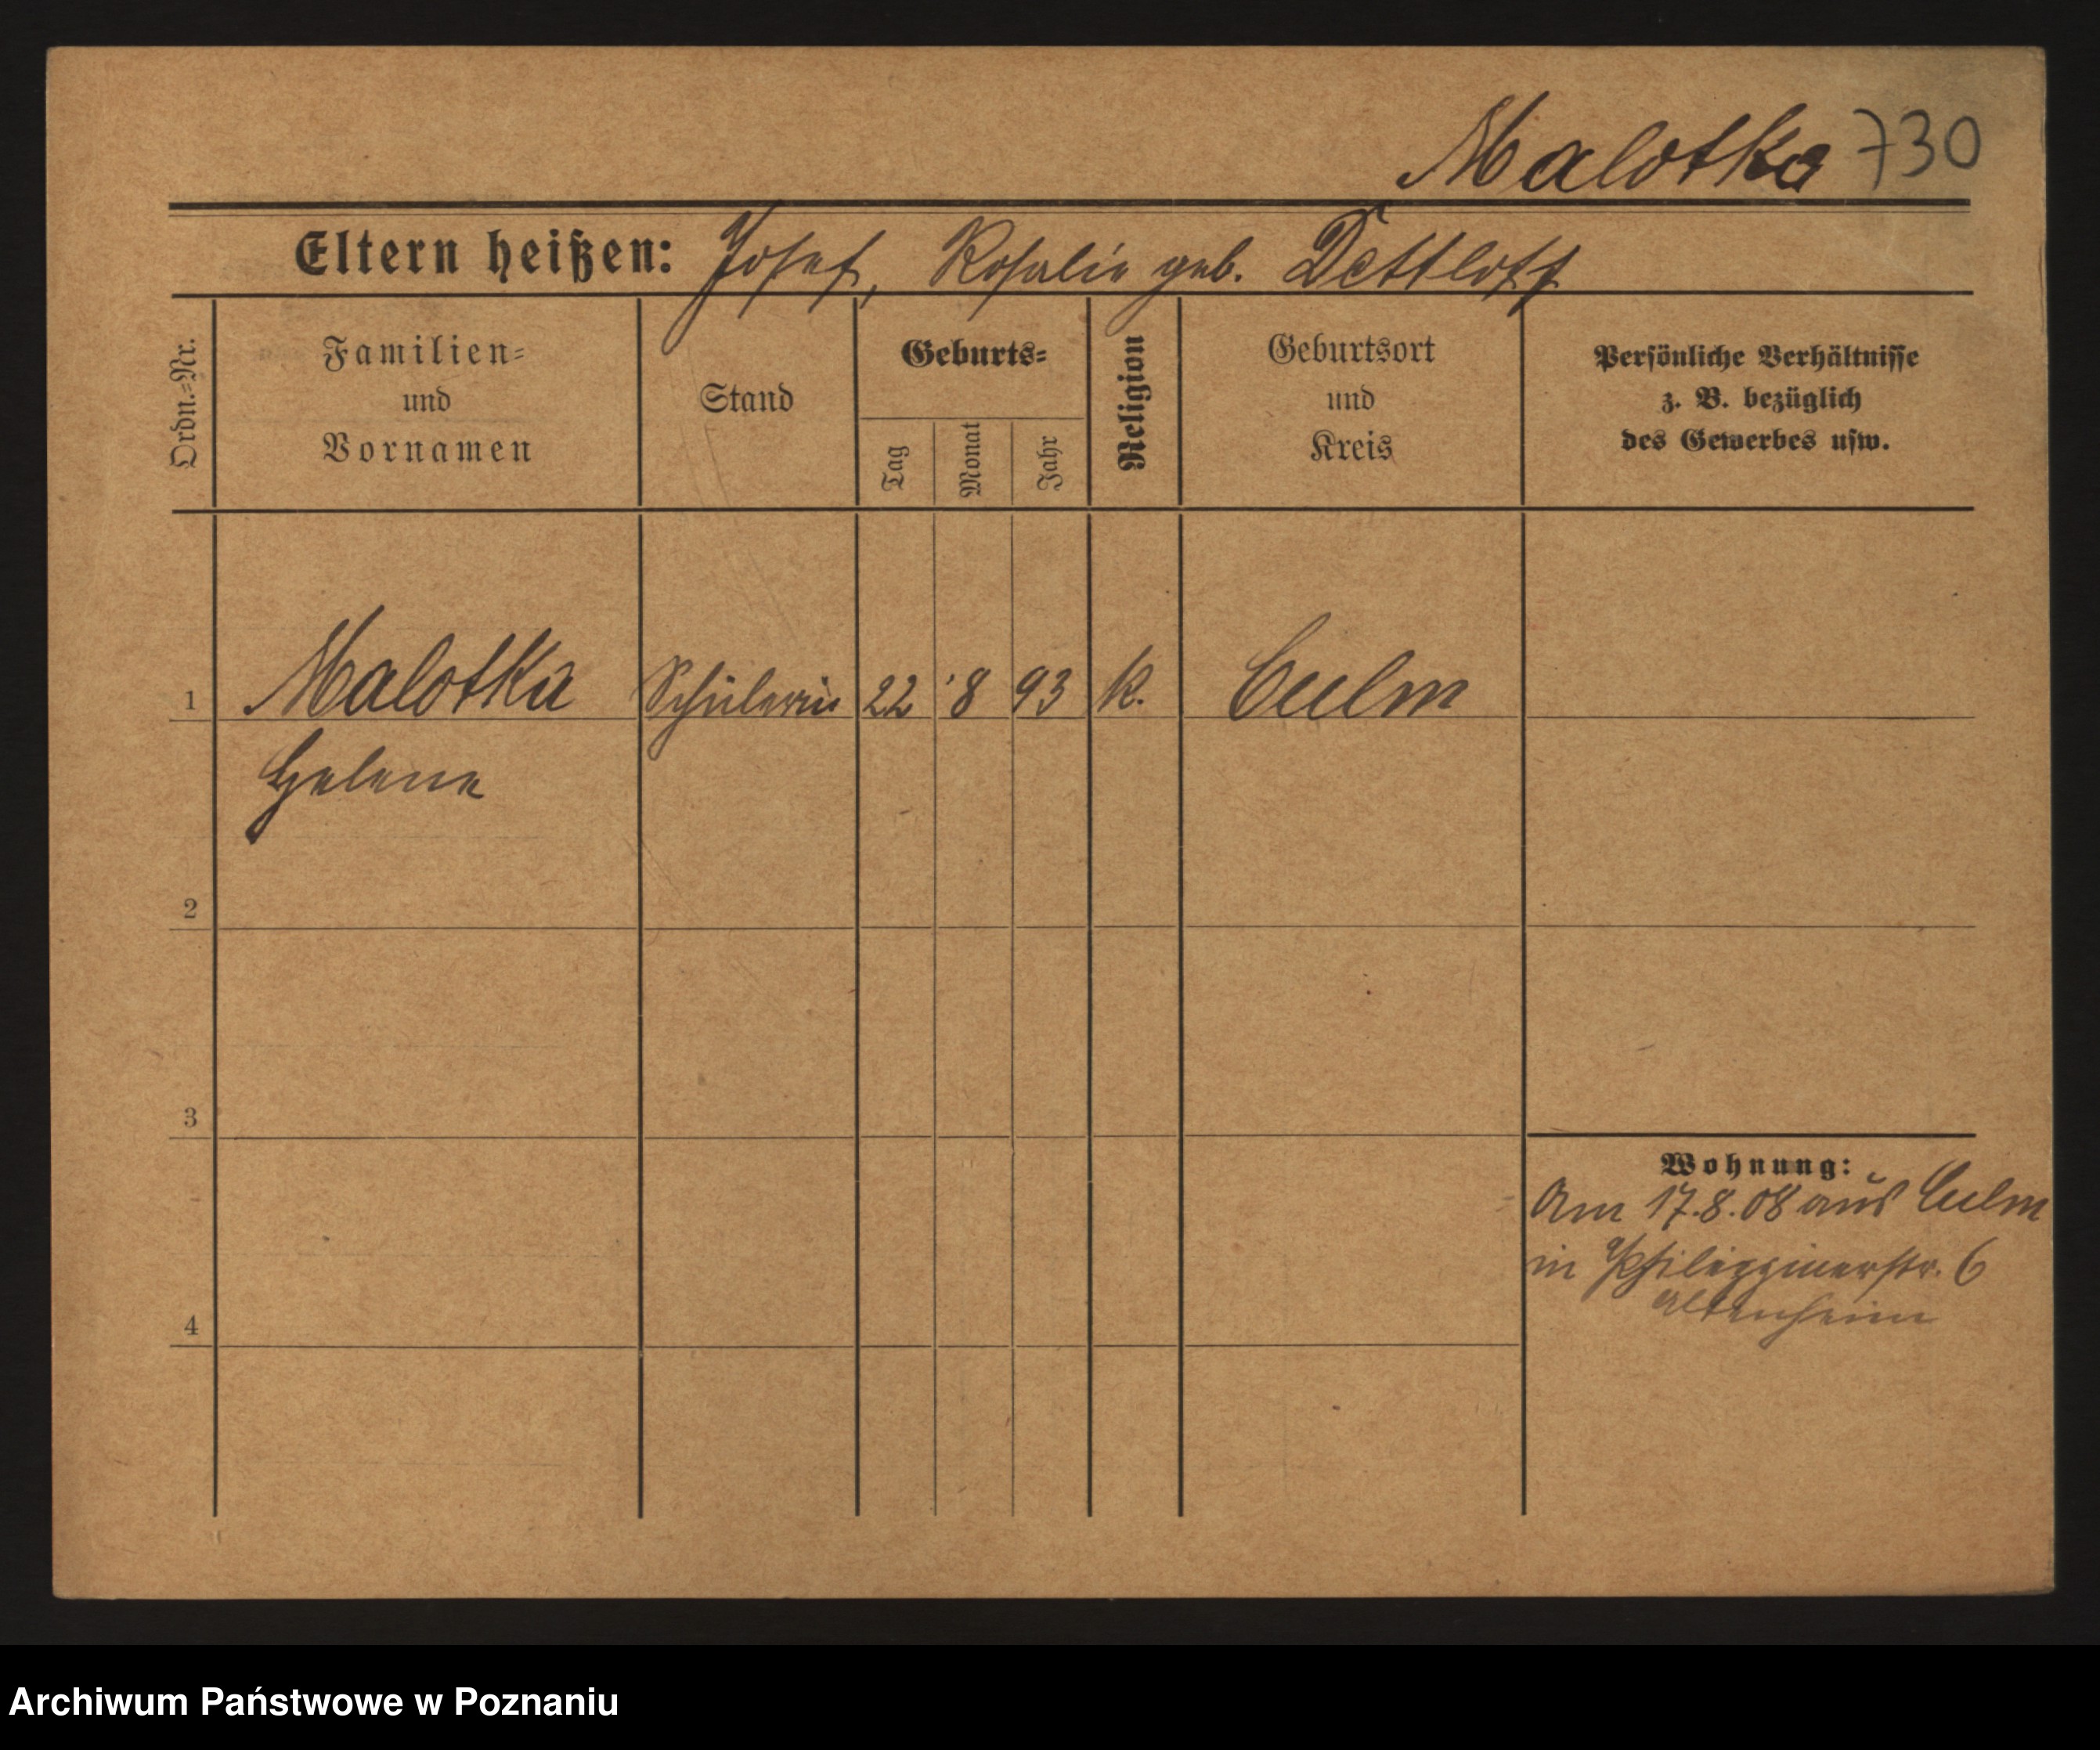 Malotka 730
Eltern heißen: Josef, Rosalie geb. Dettloff
Ordn.-Nr.
Familien- und Vornamen
Stand
Geburts-
Tag
Monat
Jahr
Religion
Geburtsort und Kreis
Persönliche Verhältnisse
z. B. bezüglich
des Gewerbes usw.
1 Malotka Schülerin 22 8 93 k. Culm
Helene
2
3
Wohnung:
Am 17.8.08 aus Culm
in Philippinerstr. 6
Altenheim
4
Archiwum Państwowe w Poznaniu